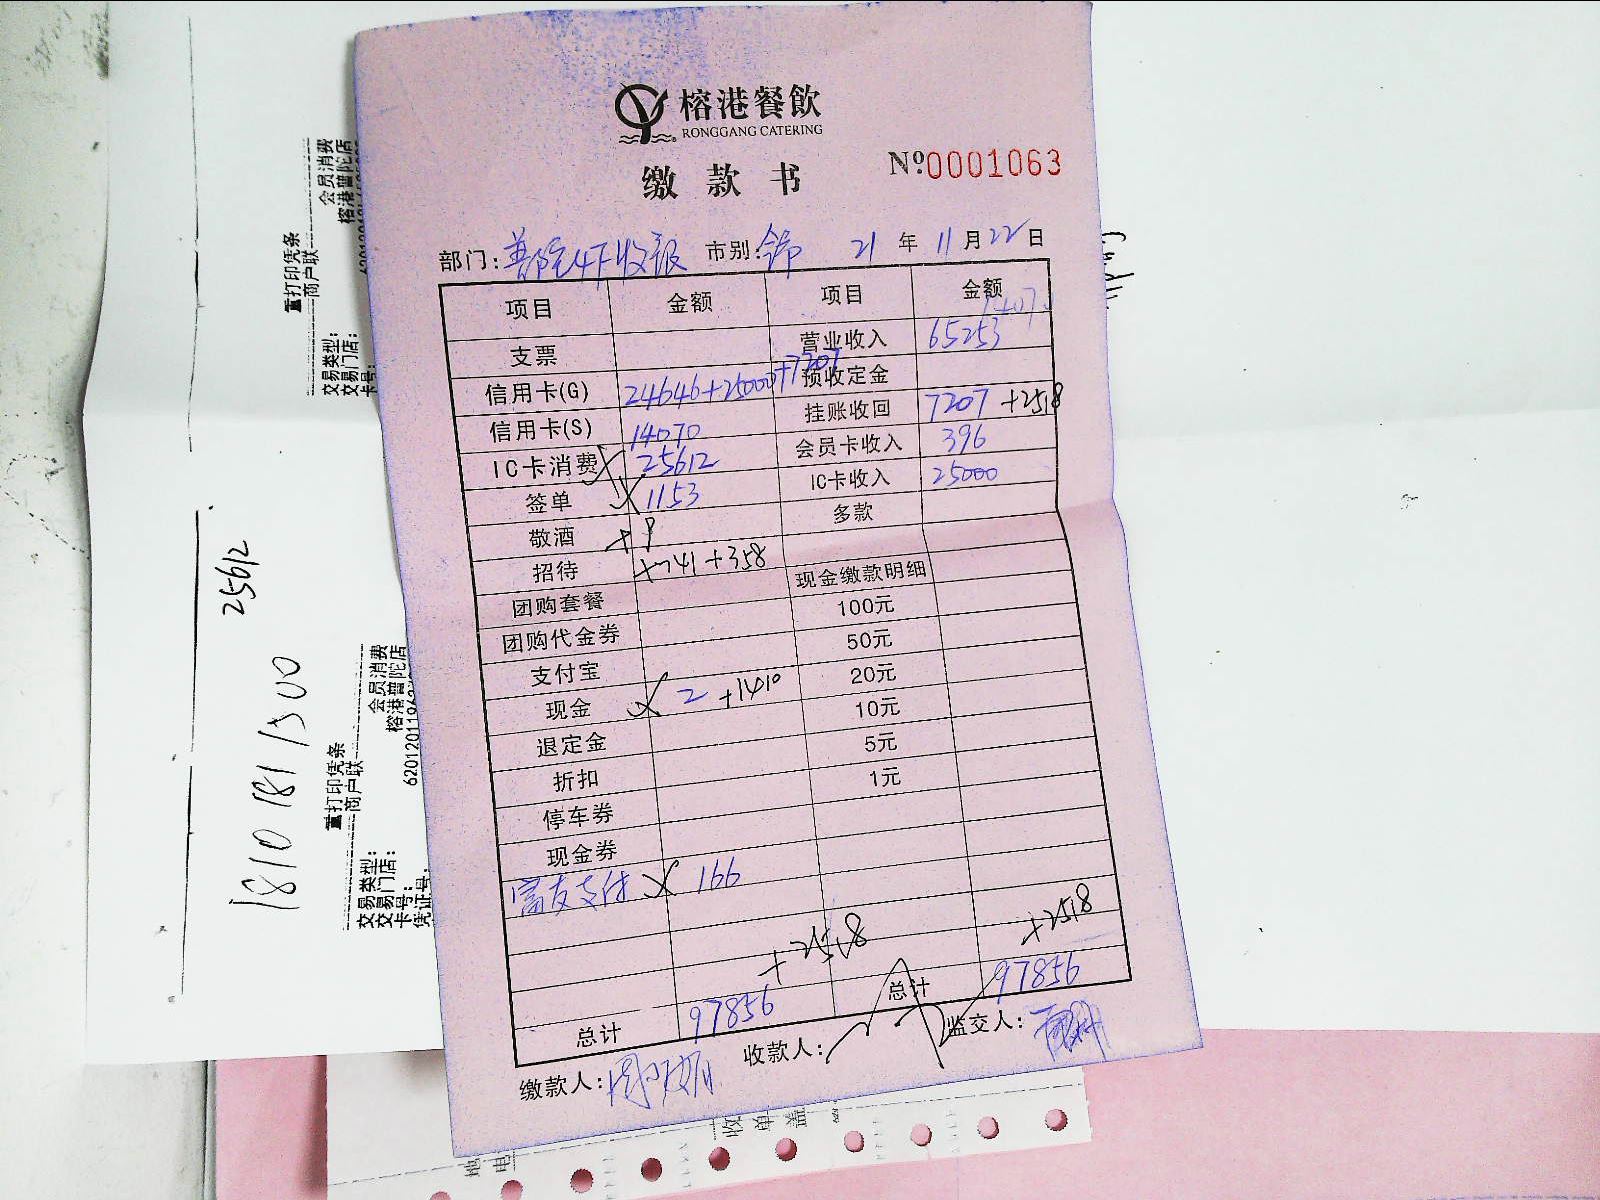 榕港餐飲
RONGGANG CATERING
缴款书
Nº0001063
部门: 普陀4F收银 市别: 21年11月22日
项目 金额 项目 金额
支票 营业收入 65253
信用卡(G) 24646+25000+7207 预收定金
信用卡(S) 14070 挂账收回 7207 +2518
IC卡消费 25612 会员卡收入 396
签单 1153 IC卡收入 25000
敬酒 多款
招待 +358
团购套餐 现金缴款明细
团购代金券 100元
支付宝 50元
现金 2 +1410 20元
退定金 10元
折扣 5元
停车券 1元
现金券
富友支付 166
+2518 +2518
总计 97856 总计 97856
缴款人: 收款人: 监交人:
重打印凭条
商户联
交易类型: 会员消费
交易门店: 榕港普陀店
卡号:
25612
重打印凭条
商户联
交易类型: 会员消费
交易门店: 榕港普陀店
卡号:
凭证号: